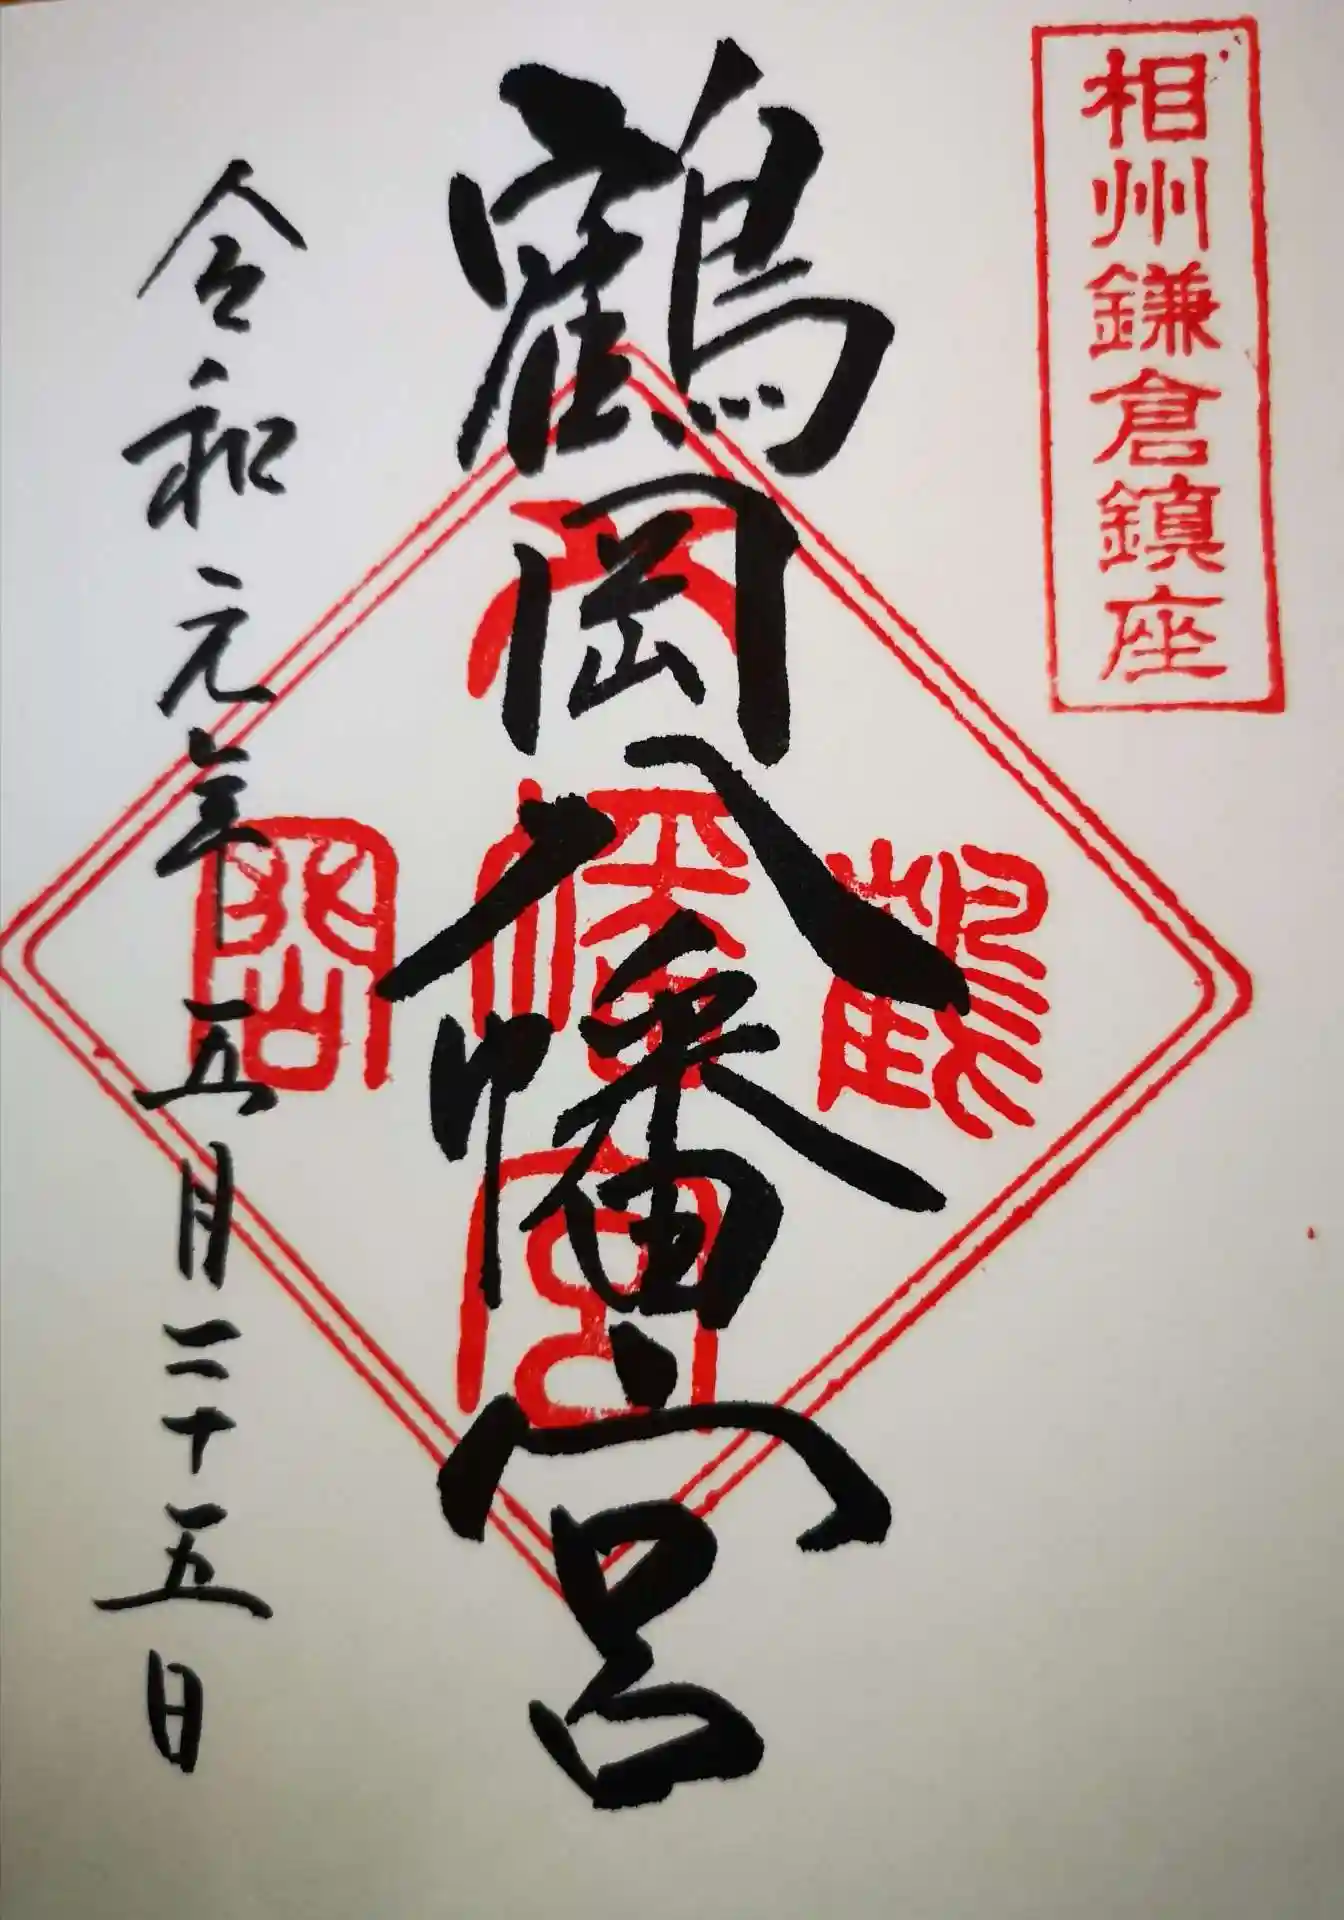 相州鎌倉鎮座
鶴岡八幡宮
鶴
八
幡
宮
岡
令和元年五月二十五日